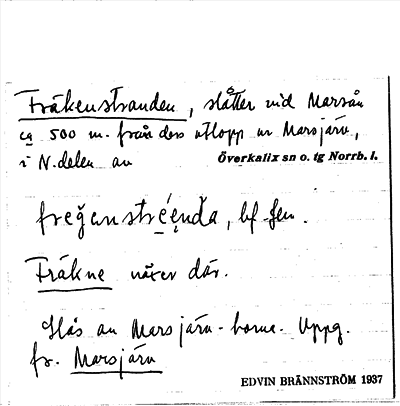 Fräkenstranden, slåtter vid Marsån
ca 500 m. från dess utlopp ur Marsjärv,
i N.delen av Överkalix sn o. tg Norrb. l.
bf. fem.
Fräkne växer där.
Slås av Marsjärv-borna. Uppg.
fr. Marsjärv
EDVIN BRÄNNSTRÖM 1937